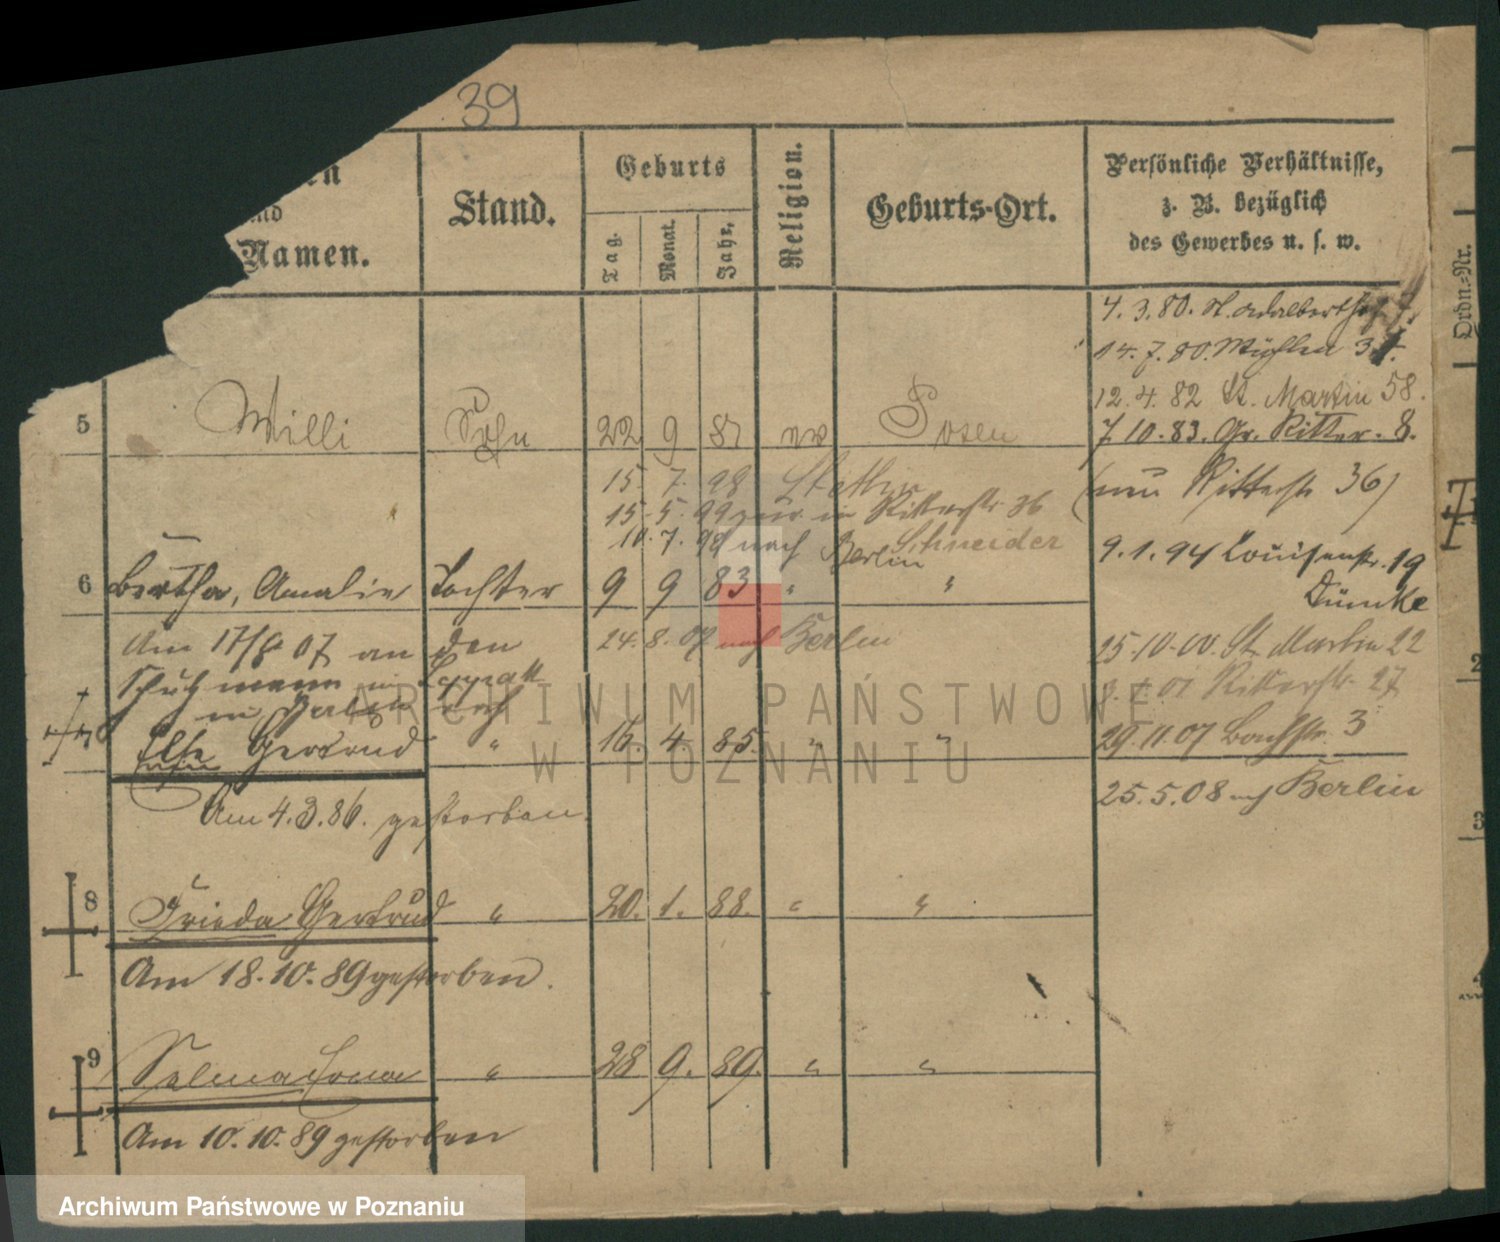 39
Namen.
Stand.
Geburts
Tag.
Monat.
Jahr.
Religion.
Geburts-Ort.
Persönliche Verhältnisse,
z. B. bezüglich
des Gewerbes u. s. w.
Ordn.-Nr.
4. 3. 80. St. Adalbertstr.
14. 7. 80. Mühlen
12. 4. 82 St. Martin 58.
5 Willi Sohn 22 9 Posen
7 10. 83. Gr. Ritter. 8.
(nun Ritterstr 36)
15. 7. 98 Stettin
15. 5. 99 in Ritterstr 36
10. 7. nach Berlin Schneider
9. 1. 94 Louisenstr. 19
Dümke
6 Bertha, Amalie Tochter 9 9 83 " "
Am 17/8 07 an den
Schutzmann
in Berlin
24. 8. 07 nach Berlin
25. 10. 00. St. Martin 22
Ritterstr. 27
29. 11. 07 Bachstr. 3
Else Gertrud " 16. 4. 85. " "
25. 5. 08 Berlin
Am 4. 3. 86. gestorben.
8 Frieda Gertrud " 20. 1. 88. " "
Am 18. 10. 89 gestorben.
9 Selma " 28 9. 89. " "
Am 10. 10. 89 gestorben
ARCHIWUM PAŃSTWOWE
W POZNANIU
Archiwum Państwowe w Poznaniu